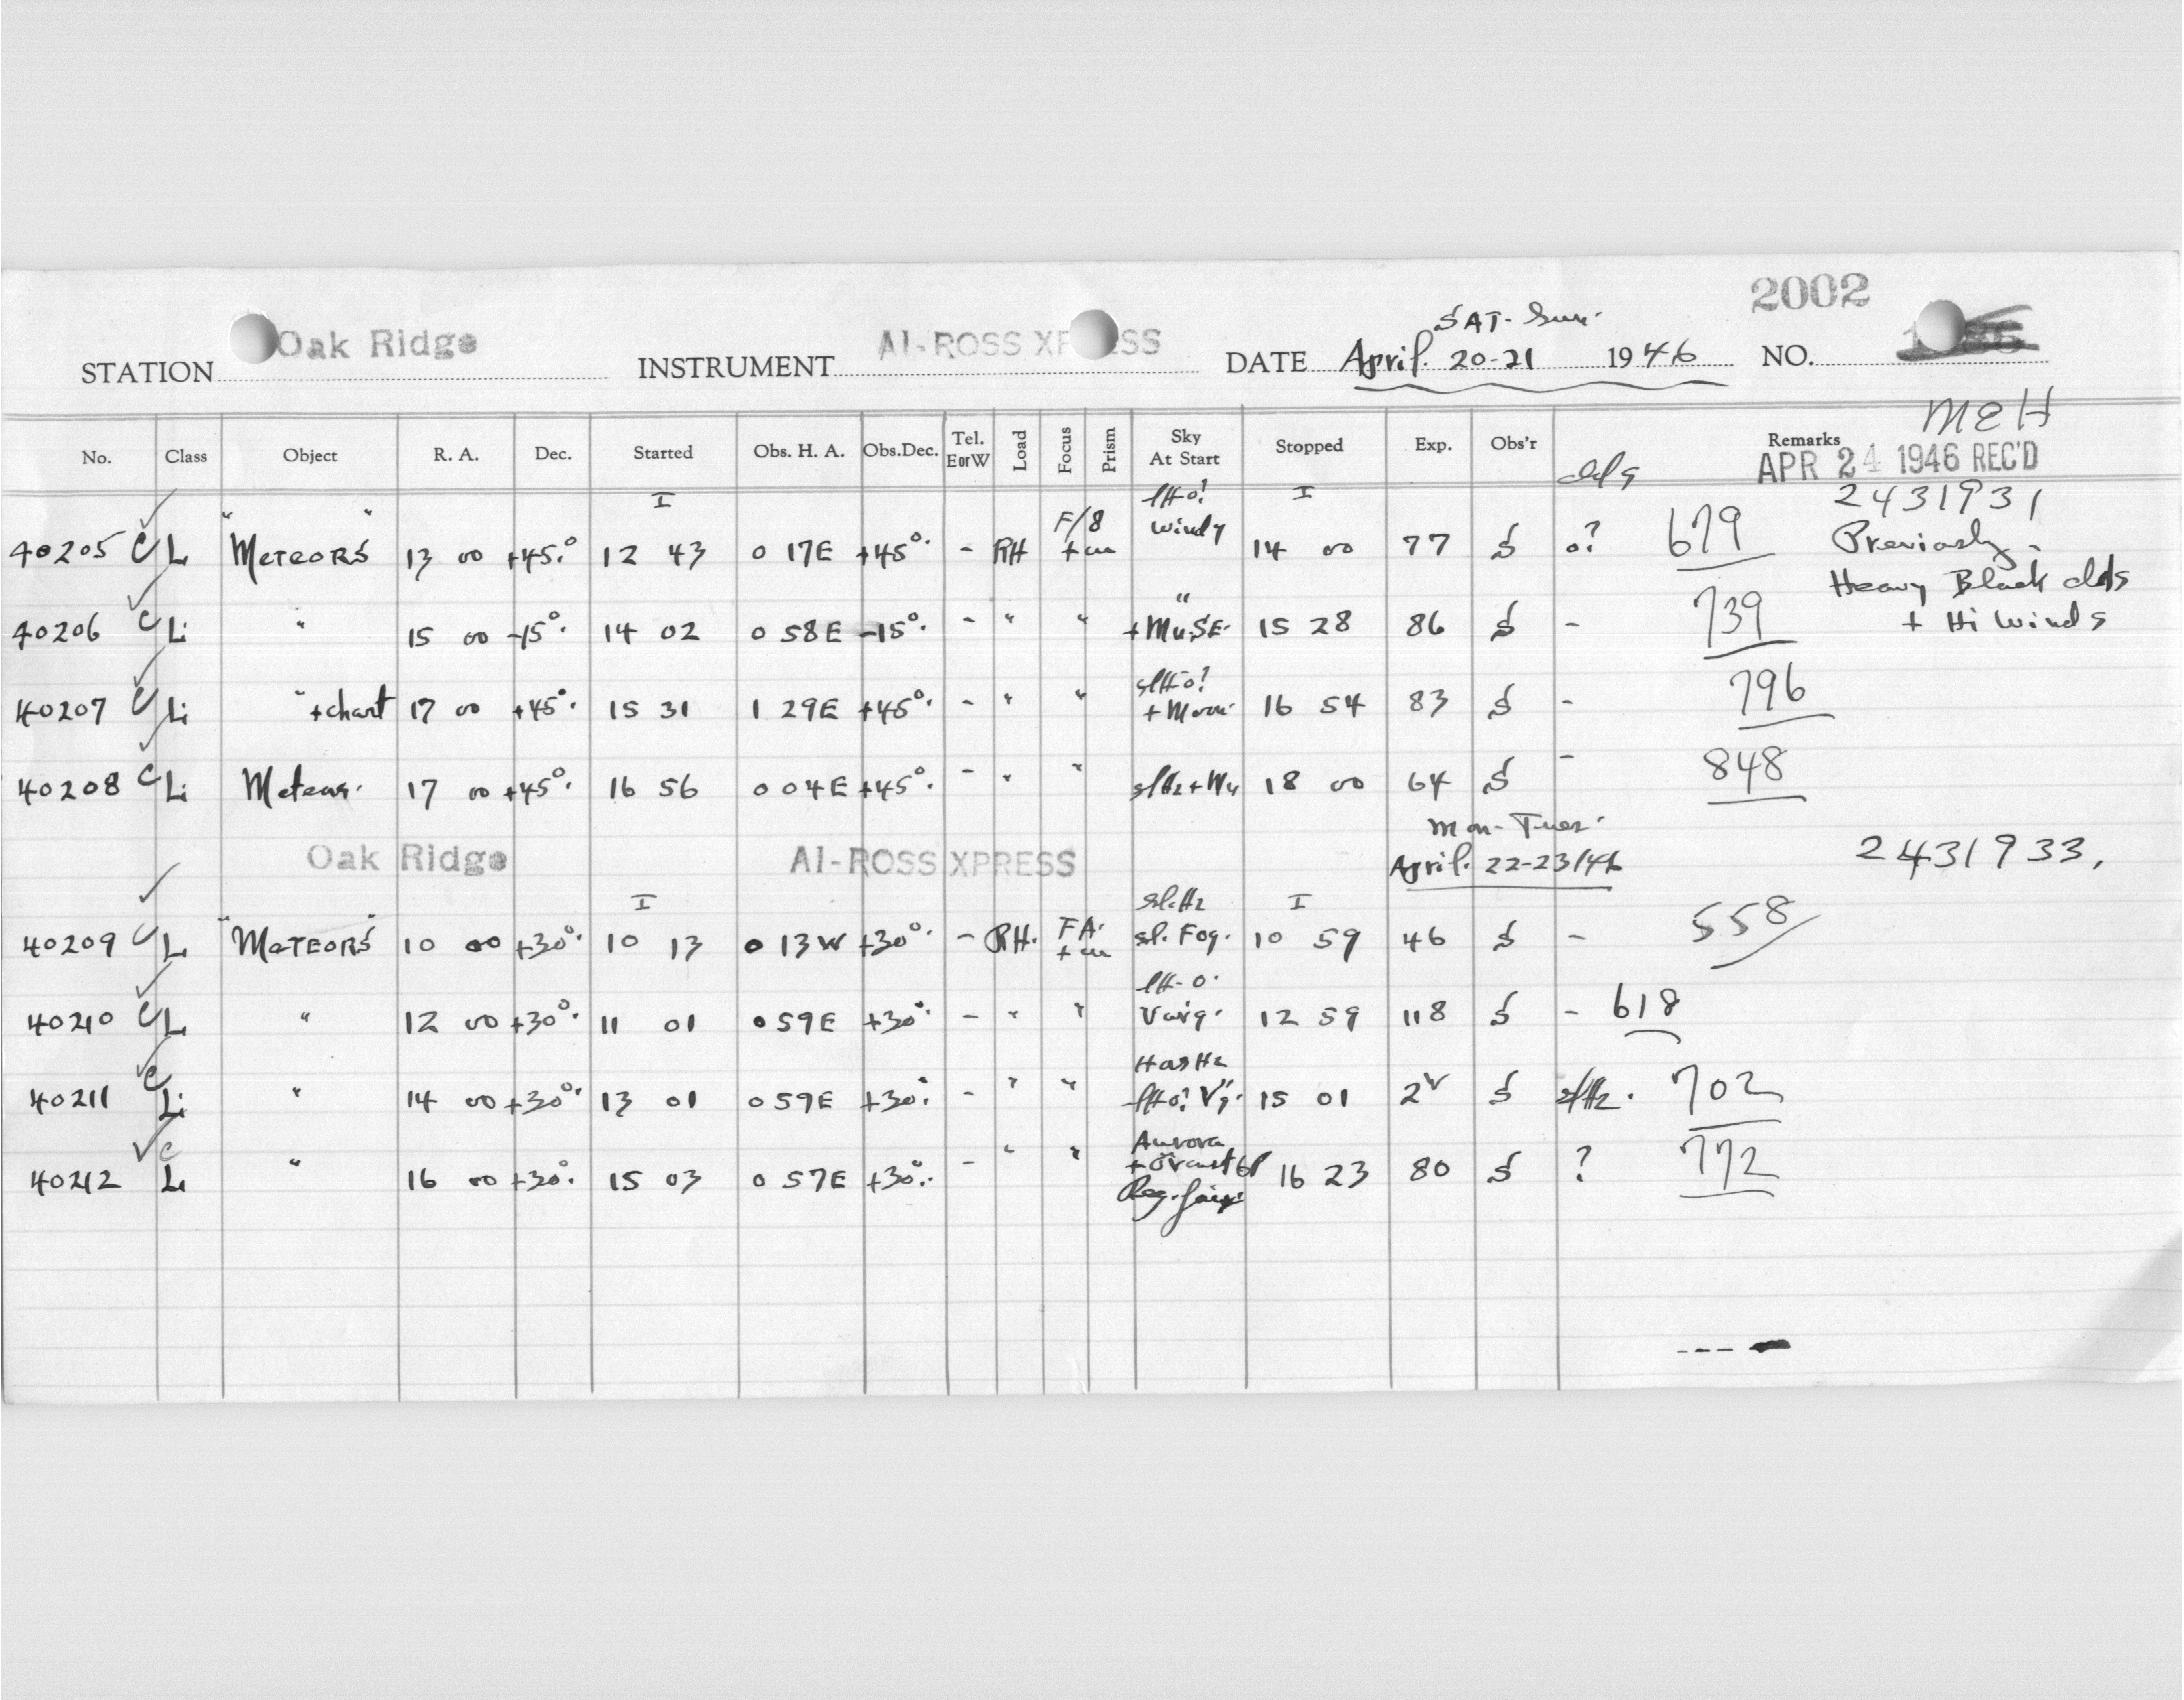 2002
SAT-Sun.
STATION Oak Ridge INSTRUMENT AI-ROSS XPRESS DATE April. 20-21 1946 NO.
MEH
No. Class Object R. A. Dec. Started Obs. H. A. Obs.Dec. Tel. EorW Load Focus Prism Sky At Start Stopped Exp. Obs'r Remarks
clds APR 24 1946 REC'D
I I 2431931
windy
40205 C L "METEORS" 13 00 +45°. 12 43 0 17E +45°. - RH F/8 14 00 77 S o? 679 Previously -
Heavy Black clds
40206 C Li " 15 00 -15°. 14 02 0 58E -15°. - " " " 15 28 86 S - 739 + Hi Winds
40207 C Li " +chart 17 00 +45°. 15 31 1 29E +45°. - " " +Moon. 16 54 83 S - 796
40208 C Li Meteors. 17 00 +45°. 16 56 0 04E +45°. - " " 18 00 64 S - 848
Mon-Tues.
Oak Ridge AI-ROSS XPRESS April. 22-23/46 2431933.
I sl.Hz I
40209 C L "METEORS" 10 00 +30°. 10 13 0 13W +30°. - RH. FA. sl. Fog. 10 59 46 S - 558
40210 C L " 12 00 +30°. 11 01 0 59E +30°. - " " 12 59 118 S - 618
Has Hz
40211 C Li " 14 00 +30°. 13 01 0 59E +30°. - " " 15 01 2 S sl Hz. 702
Aurora
40212 C L " 16 00 +30°. 15 03 0 57E +30°. - " " 16 23 80 S ? 772